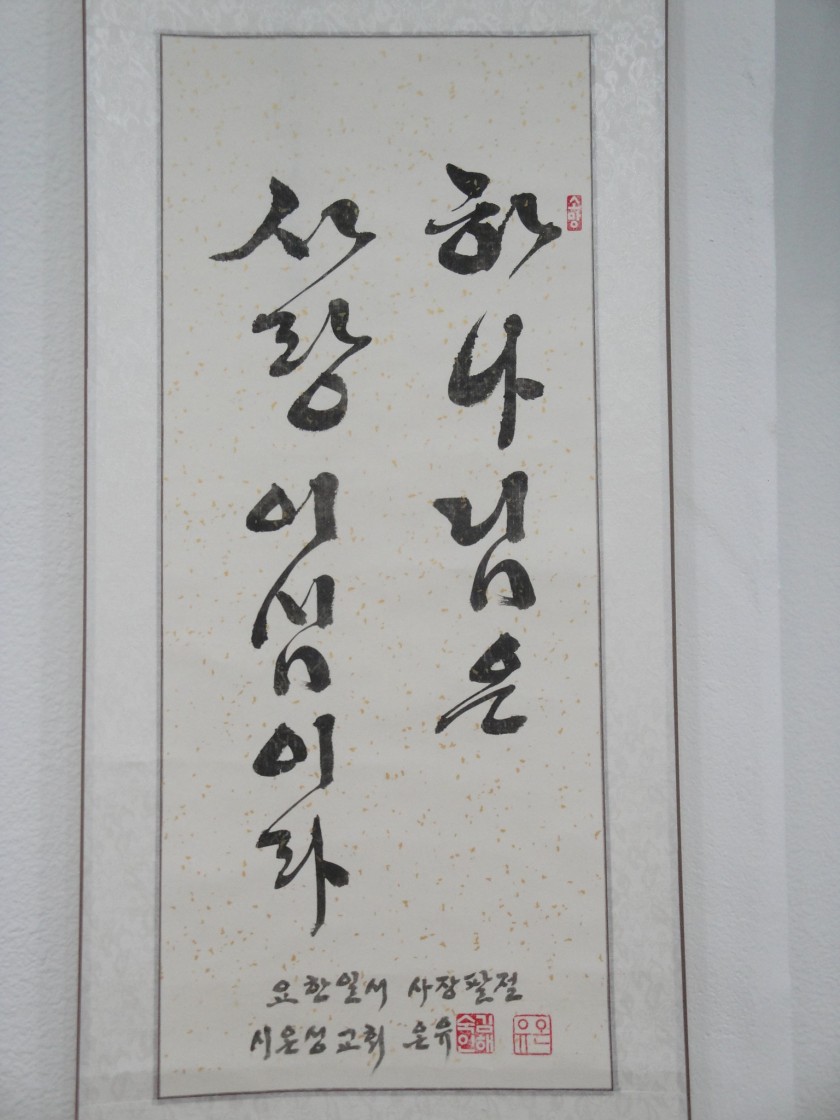 하나님은
사랑이심이라
요한일서 사장팔절
시온성교회 은유
소망
김해
숙연
은유